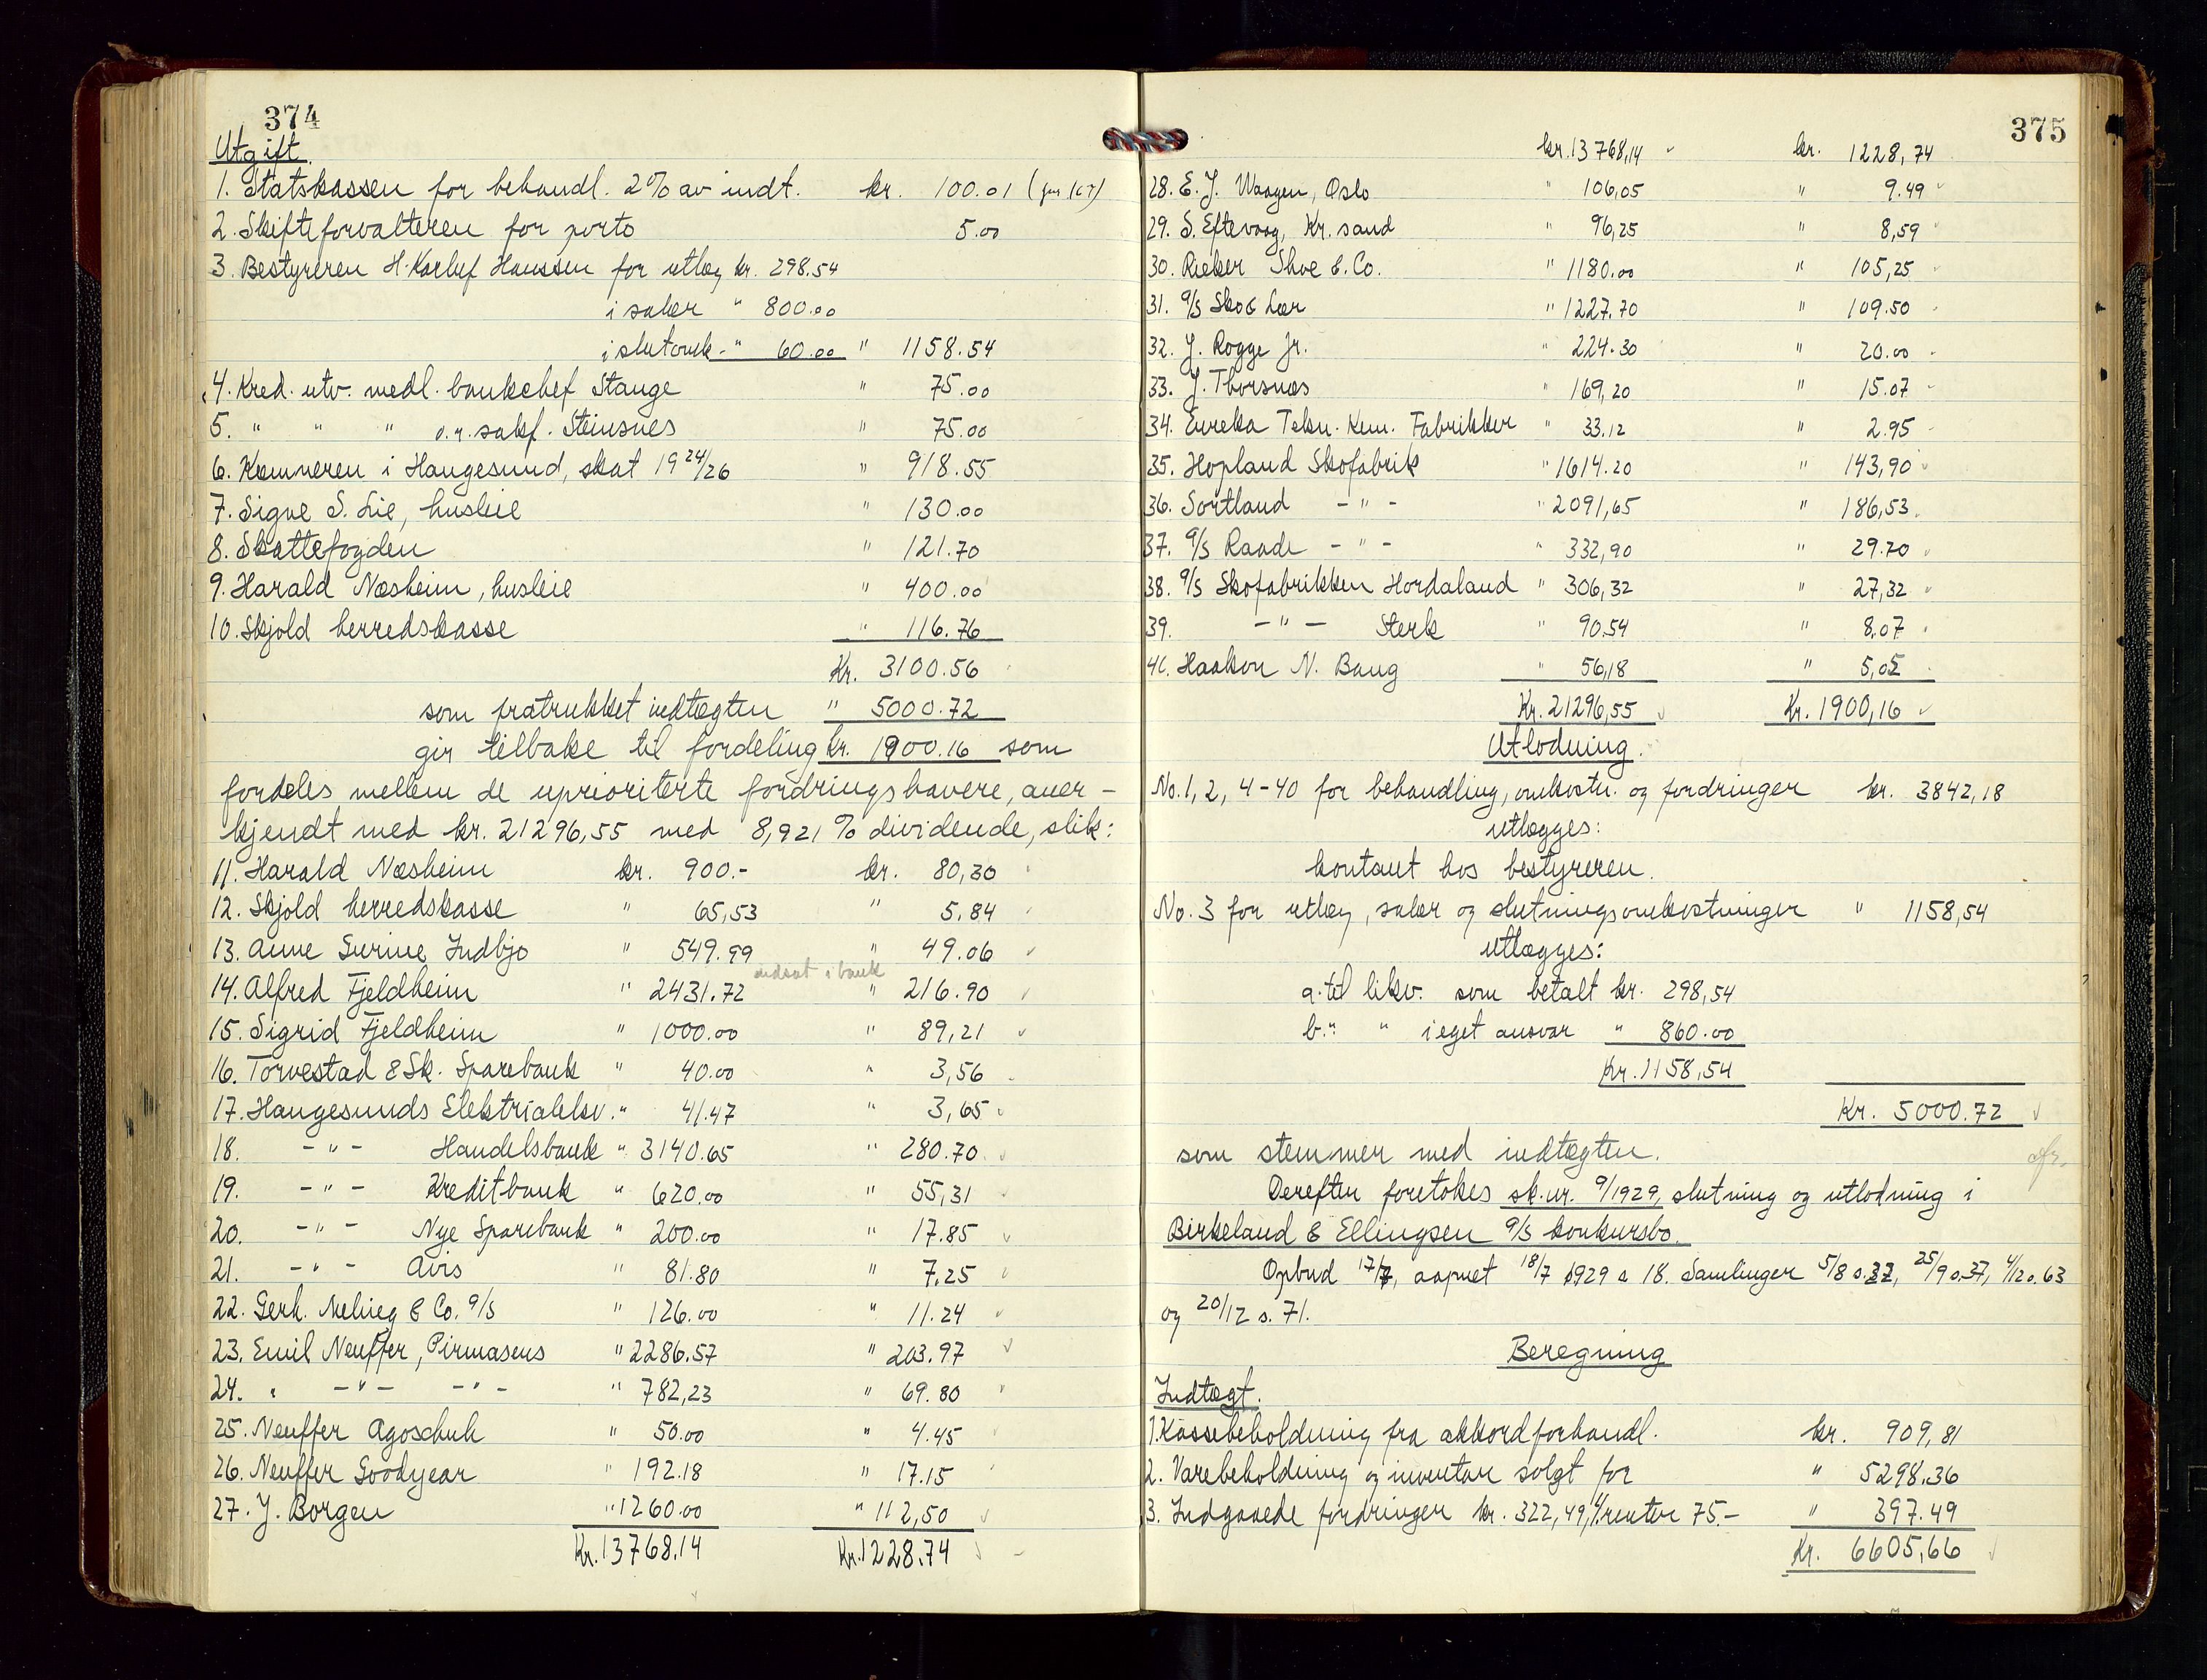 374
Utgift.
1. Statskassen for behandl. 2% av indt. kr. 100.01
2. Skifteforvalteren for porto 5.00
3. Bestyreren H. Karluf Hanssen for utlæg kr. 298.54
i salær " 800.00
i slutomk. " 60.00 " 1158.54
4. Kred. utv. medl. bankchef Stange " 75.00
5. " " " o.r.sakf. Steinsnes " 75.00
6. Kæmneren i Haugesund, skat 1924/26 " 918.55
7. Signe S. Lie, husleie " 130.00
8. Skattefogden " 121.70
9. Harald Næsheim, husleie " 400.00
10. Skjold herredskasse " 116.76
Kr. 3100.56
som fratrukket indtægten " 5000.72
gir tilbake til fordeling kr. 1900.16 som
fordeles mellem de uprioriterte fordringshavere, aner-
kjendt med kr. 21296,55 med 8,921 % dividende, slik:
11. Harald Næsheim kr. 900.- kr. 80,30
12. Skjold herredskasse " 65,53 " 5.84
13. Anne Serine Indbjo " 549.99 " 49.06
indsat i bank
14. Alfred Fjeldheim " 2431.72 " 216.90
15. Sigrid Fjeldheim " 1000.00 " 89,21
16. Torvestad & Sk. Sparebank " 40.00 " 3,56
17. Haugesunds Elektrialeksv. " 41.47 " 3,65
18. - " - Handelsbank " 3140.65 " 280.70
19. - " - Kreditbank " 620.00 " 55,31
20. - " - Nye Sparebank " 200.00 " 17.85
21. - " - Avis " 81.80 " 7,25
22. Gerh. & Co. A/S " 126.00 " 11.24
23. Emil Neuffer, Pirmasens " 2286.57 " 203.97
24. " - " - - " - " 782,23 " 69.80
25. Neuffer Agoschuh " 50.00 " 4.45
26. Neuffer Goodyear " 192.18 " 17.15
27. J. Borgen " 1260.00 " 112,50
Kr. 13768.14 Kr. 1228.74
375
kr. 13768,14 kr. 1228,74
28. E. J. Waagen, Oslo " 106,05 " 9.49
29. S. Eftevaag, Kr.sand " 96,25 " 8,59
30. Rieker Shoe & Co. " 1180.00 " 105,25
31. A/S Sko & Lær " 1227.70 " 109.50
32. J. Rogge Jr. " 224.30 " 20.00
33. J. Thorsnæs " 169,20 " 15.07
34. Eureka Tekn. Kem. Fabrikker " 33.12 " 2.95
35. Hopland Skofabrik " 1614.20 " 143,90
36. Sortland - " - " 2091,65 " 186,53
37. A/S Raade - " - " 332,90 " 29.70
38. A/S Skofabrikken Hordaland " 306,32 " 27,32
39. - " - Sterk " 90.54 " 8,07
40. Haakon N. Baug " 56,18 " 5,05
Kr. 21296,55 Kr. 1900,16
Utlodning.
No. 1, 2, 4-40 for behandling, omkostn. og fordringer kr. 3842,18
utlægges:
kontant hos bestyreren.
No. 3 for utlæg, salær og slutningsomkostninger " 1158,54
utlægges:
a. til likv. som betalt kr. 298,54
b. " " i eget ansvar " 860.00
Kr. 1158,54
Kr. 5000.72
som stemmer med indtægten.
Derefter foretokes sk.nr. 9/1929, slutning og utlodning i
Birkeland & Ellingsen A/S konkursbo.
Opbud 17/7, aapnet 18/7 1929 s 18. Samlinger 5/8 s.37, 25/9 s.37, 4/12 s.63
og 20/12 s. 71.
Beregning
Indtægt.
1. Kassebeholdning fra akkordforhandl. kr. 909,81
2. Varebeholdning og inventar solgt for " 5298.36
3. Indgaaede fordringer kr. 322,49, renter 75.- " 397.49
Kr. 6605,66